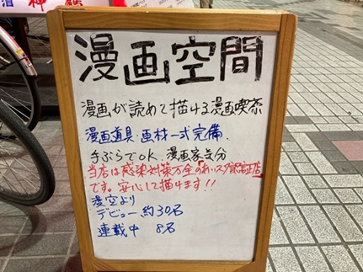 漫画空間
漫画が読めて描ける漫画喫茶
漫画道具、画材一式完備、
手ぶらでOK、漫画家気分
当店は感染対策万全
です。安心して描けます!!
漫空より
デビュー 約30名
連載中 8名